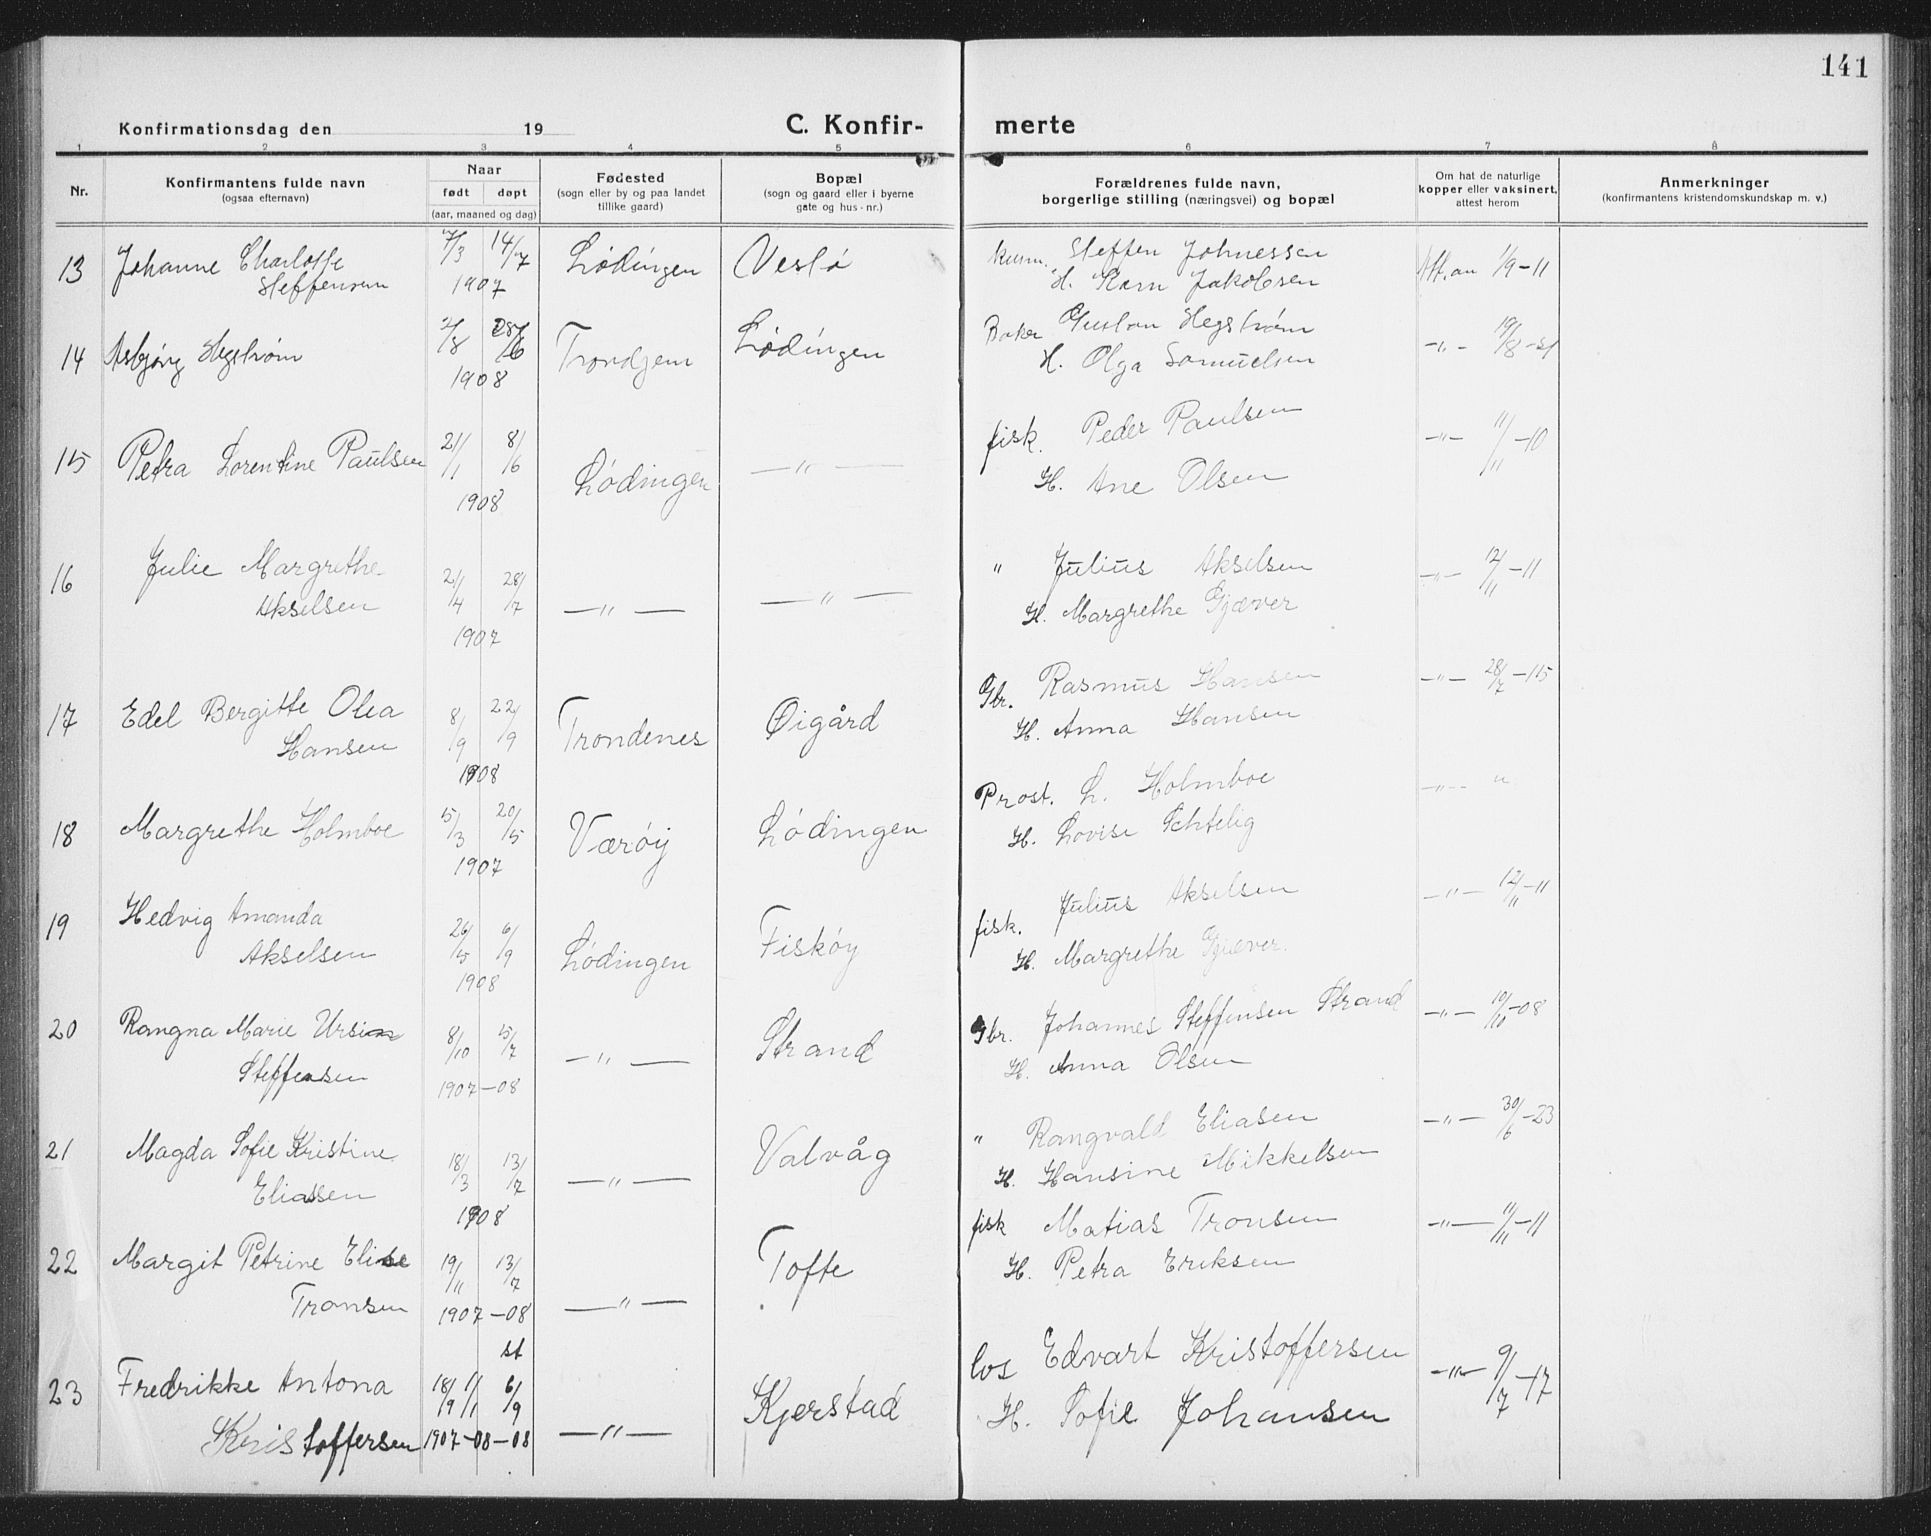 141
Konfirmationsdag den 19 C. Konfir- merte
1 2 3 4 5 6 7 8
Nr. Konfirmantens fulde navn (ogsaa efternavn) Naar født døpt (aar, maaned og dag) Fødested (sogn eller by og paa landet tillike gaard) Bopæl (sogn og gaard eller i byerne gate og hus-nr.) Forældrenes fulde navn, borgerlige stilling (næringsvei) og bopæl Om hat de naturlige kopper eller vaksinert, attest herom Anmerkninger (konfirmantens kristendomskundskap m. v.)
13 Johanne Charlotte 7/3 14/7 Lødingen Steffen Johnessen Att. an 1/9-11
Steffensen 1907 H. Karn Jakobsen
14 Asbjørg Hegstrøm 2/8 Trondjem Lødingen Baker Gustav Hegstrøm -"- 19/8-21
1908 H. Olga Samuelsen
15 Petra Lorentine Paulsen 21/1 8/6 Lødingen -"- fisk. Peder Paulsen -"- 11/11-10
1908 H. Ane Olsen
16 Julie Margrethe 21/4 28/7 -"- -"- " Julius Akselsen -"- 12/11-11
Akselsen 1907 H. Margrethe Gjæver
17 Edel Bergitte Olea 8/9 22/9 Trondenes Øigård Gbr. Rasmus Hansen -"- 28/7-15
Hansen 1908 H. Anna Hansen
18 Margrethe Holmboe 5/3 20/5 Værøy Lødingen Prost. L. Holmboe -"- "
1907 H. Lovise Schtelig
19 Hedvig Amanda 26/5 6/9 Lødingen Fiskøy fisk. Julius Akselsen -"- 12/11-11
Akselsen 1908 H. Margrethe Gjæver.
20 Rangna Marie 8/10 5/7 -"- Strand Gbr. Johannes Steffensen Strand -"- 10/10-08
Steffensen 1907-08 H. Anna Olsen
21 Magda Sofie Kristine 18/3 13/7 -"- Valvåg " Rangvald Eliasen -"- 30/6-23
Eliassen 1908 H. Hansine Mikkelsen
22 Margit Petrine Elise 19/11 13/7 -"- Tofte fisk Matias Tronsen -"- 11/11-11
Tronsen 1907-08 H. Petra Eriksen
st
23 Fredrikke Antona 18/9 1/1 6/9 -"- Kjerstad los Edvart Kristoffersen -"- 9/7-17
Kristoffersen 1907-08-08 H. Sofie Johansen